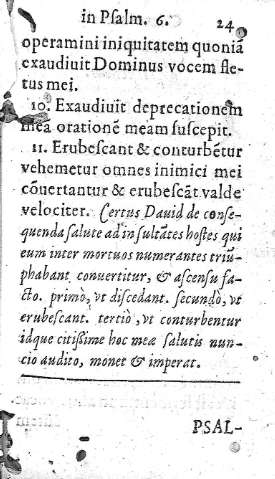 in Psalm. 6. 24
operamini iniquitatem quoniã
exaudiuit Dominus vocem fle-
tus mei.
10. Exaudiuit deprecationem
mea orationẽ meam suscepit.
11. Erubescant & conturbẽtur
vehemetur omnes inimici mei
cõuertantur & erubescãt valde
velociter. Certus Dauid de conse-
quenda salute ad insultãtes hostes qui
eum inter mortuos numerantes triũ-
phabant conuertitur, & ascensu fa-
cto. primò, vt discedant. secundò, vt
erubescant. tertiò, vt conturbentur
idque citissime hoc meæ salutis nun-
cio audito, monet & imperat.
PSAL-